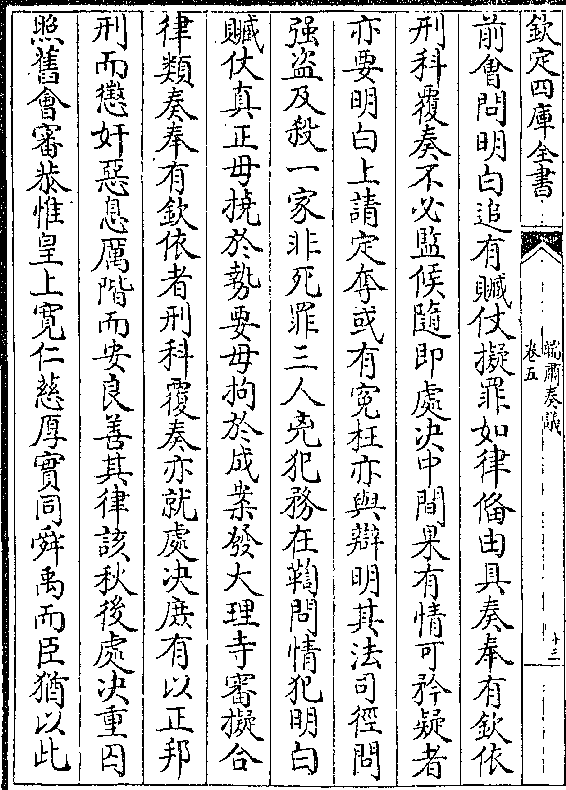 欽定四庫全書
端肅奏議
卷五
十三
前會問明白追有贓仗擬罪如律備由具奏奉有欽依
刑科覆奏不必監候隨即處決中間果有情可矜疑者
亦要明白上請定奪或有寃枉亦與辯明其法司徑問
强盗及殺一家非死罪三人兇犯務在鞫問情犯明白
贓仗真正毋撓於勢要毋拘於成案發大理寺審擬合
律類奏奉有欽依者刑科覆奏亦就處決庶有以正邦
刑而懲奸惡息厲階而安良善其律該秋後處決重囚
照舊會審恭惟皇上寛仁慈厚實同舜禹而臣猶以此